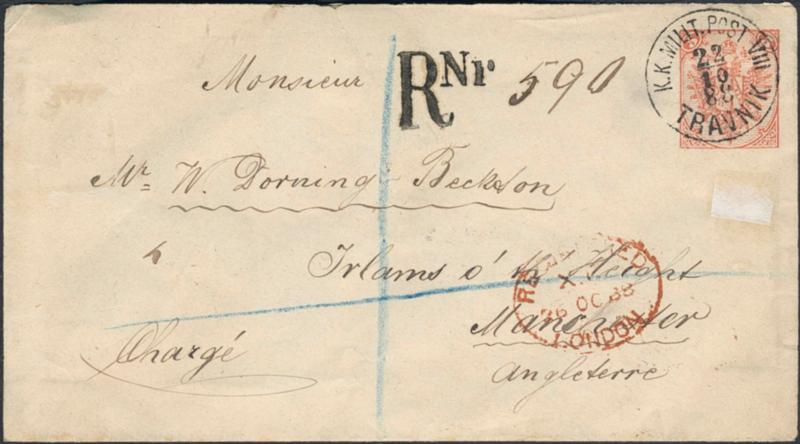 K.K. MILIT. POST VIII
22
10
88
TRAVNIK
Monsieur
R Nr 590
Mr W. Dorning-Beckton
Irlams o' th' Height
Manchester
Angleterre
Chargé
REGISTERED
X
26 OC 88
LONDON